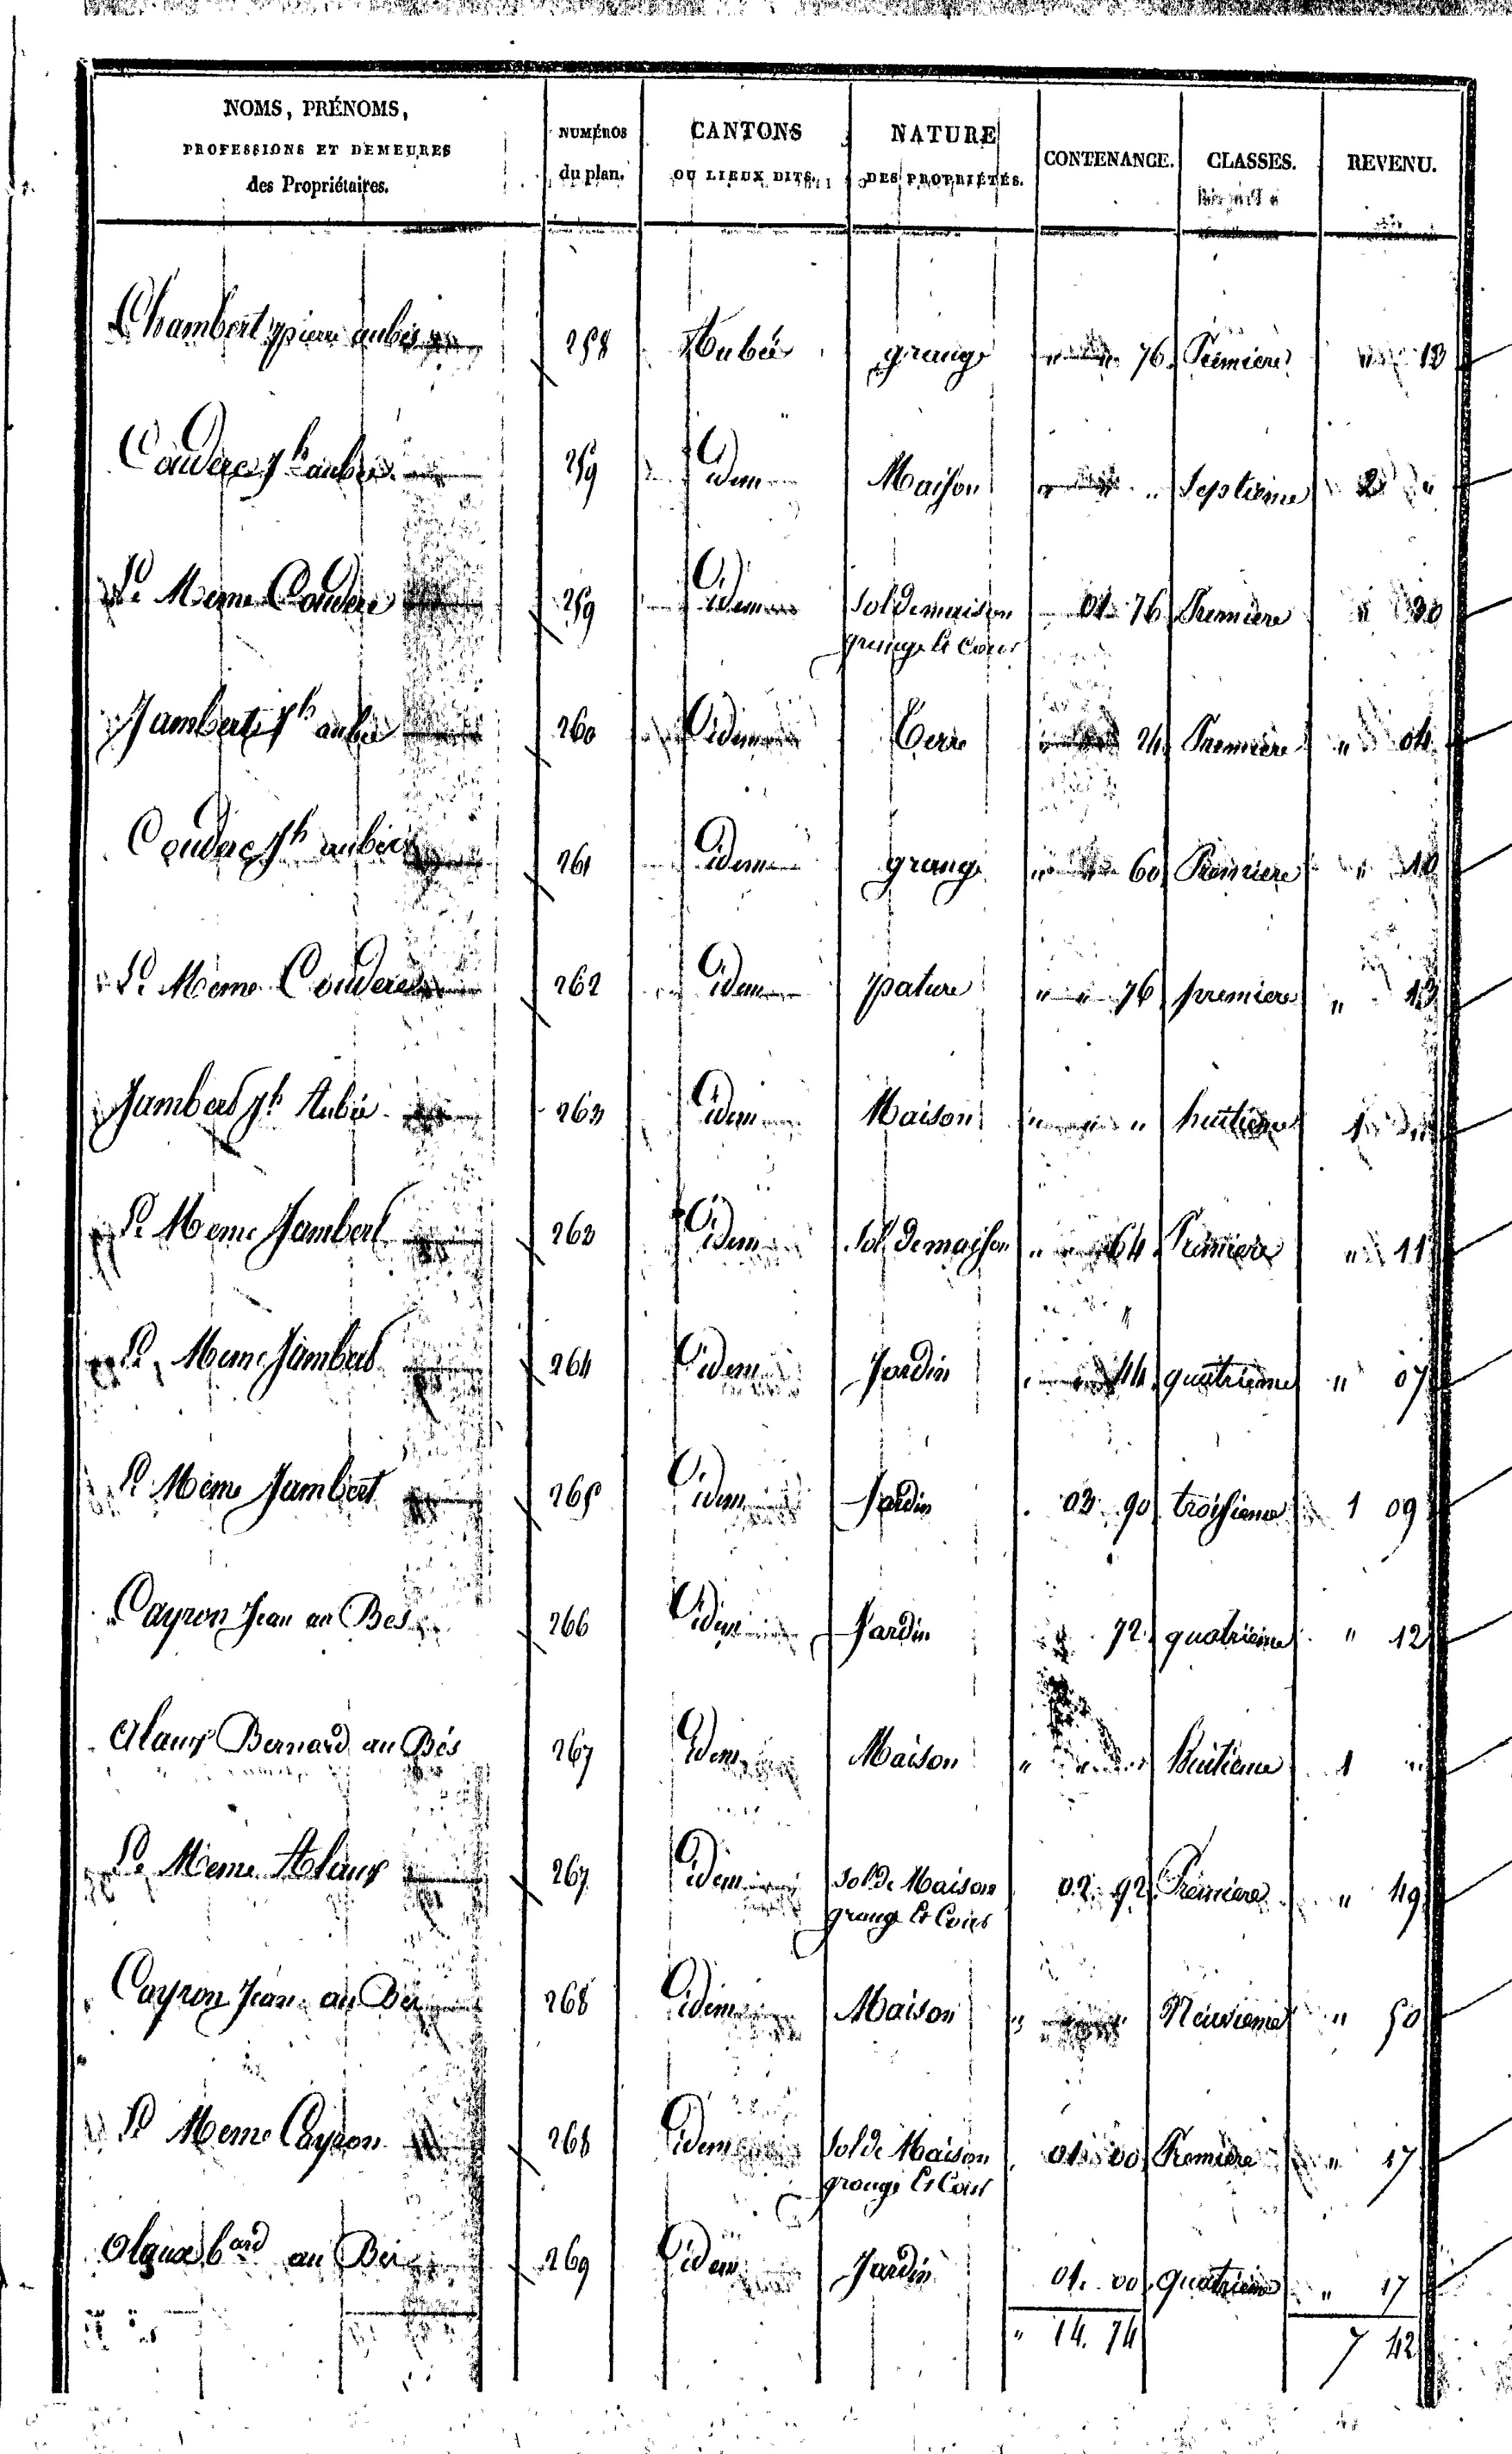 NOMS, PRÉNOMS, PROFESSIONS ET DEMEURES des Propriétaires. NUMÉROS du plan. CANTONS OU LIEUX DITS. NATURE DES PROPRIÉTÉS. CONTENANCE. CLASSES. REVENU.
Chambert pierre 258 grange " " 76 Premiere " 13
Couderc Jh 259 idem Maison " " " septieme 2 "
Le Meme Couderc 259 idem Sol de maison 01 76 Premiere " 30
grange et Cour
Jambert Jh 260 idem Terre " " 24 Premiere " 04
Couderc Jh 261 idem grange " " 60 Premiere " 10
Le Meme Couderc 262 idem pature " " 76 premiere " 13
Jambert Jh 263 idem Maison " " " huitieme 1 "
Le Meme Jambert 263 idem Sol de maison " " 64 Premiere " 11
Le Meme Jambert 264 idem Jardin " " 44 quatrieme " 07
Le Meme Jambert 265 idem Jardin 03 90 troisieme 1 09
Cayron Jean au Bes 266 idem Jardin " 72 quatrieme " 12
Alaux Bernard au Bés 267 idem Maison " " " huitieme 1 "
Le Meme Alaux 267 idem Sol de Maison 02 92 Premiere " 49
grange et Cour
Cayron Jean au Bes 268 idem Maison " " " Neuvieme " 50
Le Meme Cayron 268 idem Sol de Maison 01 00 Premiere " 17
grange et Cour
Alaux bard au Bes 269 idem Jardin 01. 00 quatrieme " 17
" 14. 74 7 42